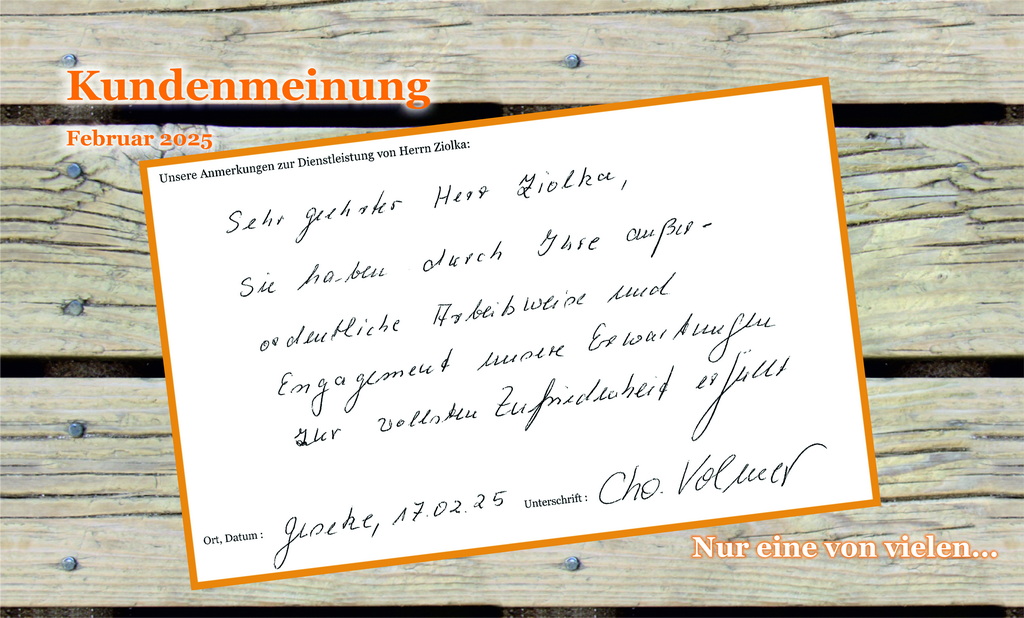 Kundenmeinung
Februar 2025
Unsere Anmerkungen zur Dienstleistung von Herrn Ziolka:
Sehr geehrter Herr Ziolka,
Sie haben durch Ihre außer-
ordentliche Arbeitsweise und
Engagement unsere Erwartungen
zur vollsten Zufriedenheit erfüllt
Ort, Datum : Geseke, 17.02.25 Unterschrift : Chr. Volmer
Nur eine von vielen...